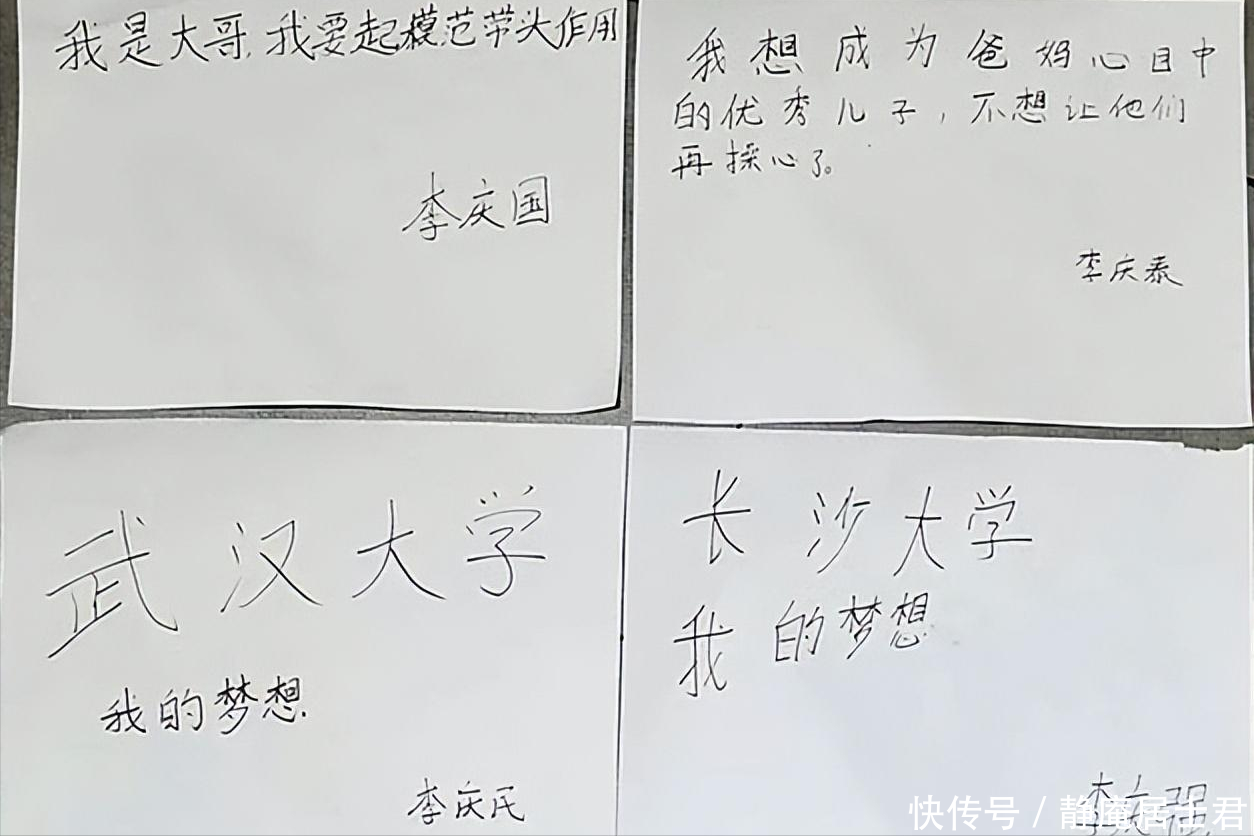 我是大哥,我要起模范带头作用
李庆国
我想成为爸妈心目中
的优秀儿子,不想让他们
再操心了。
李庆泰
武汉大学
我的梦想.
李庆民
长沙大学
我的梦想
李庆强
快传号 / 静庵居士君